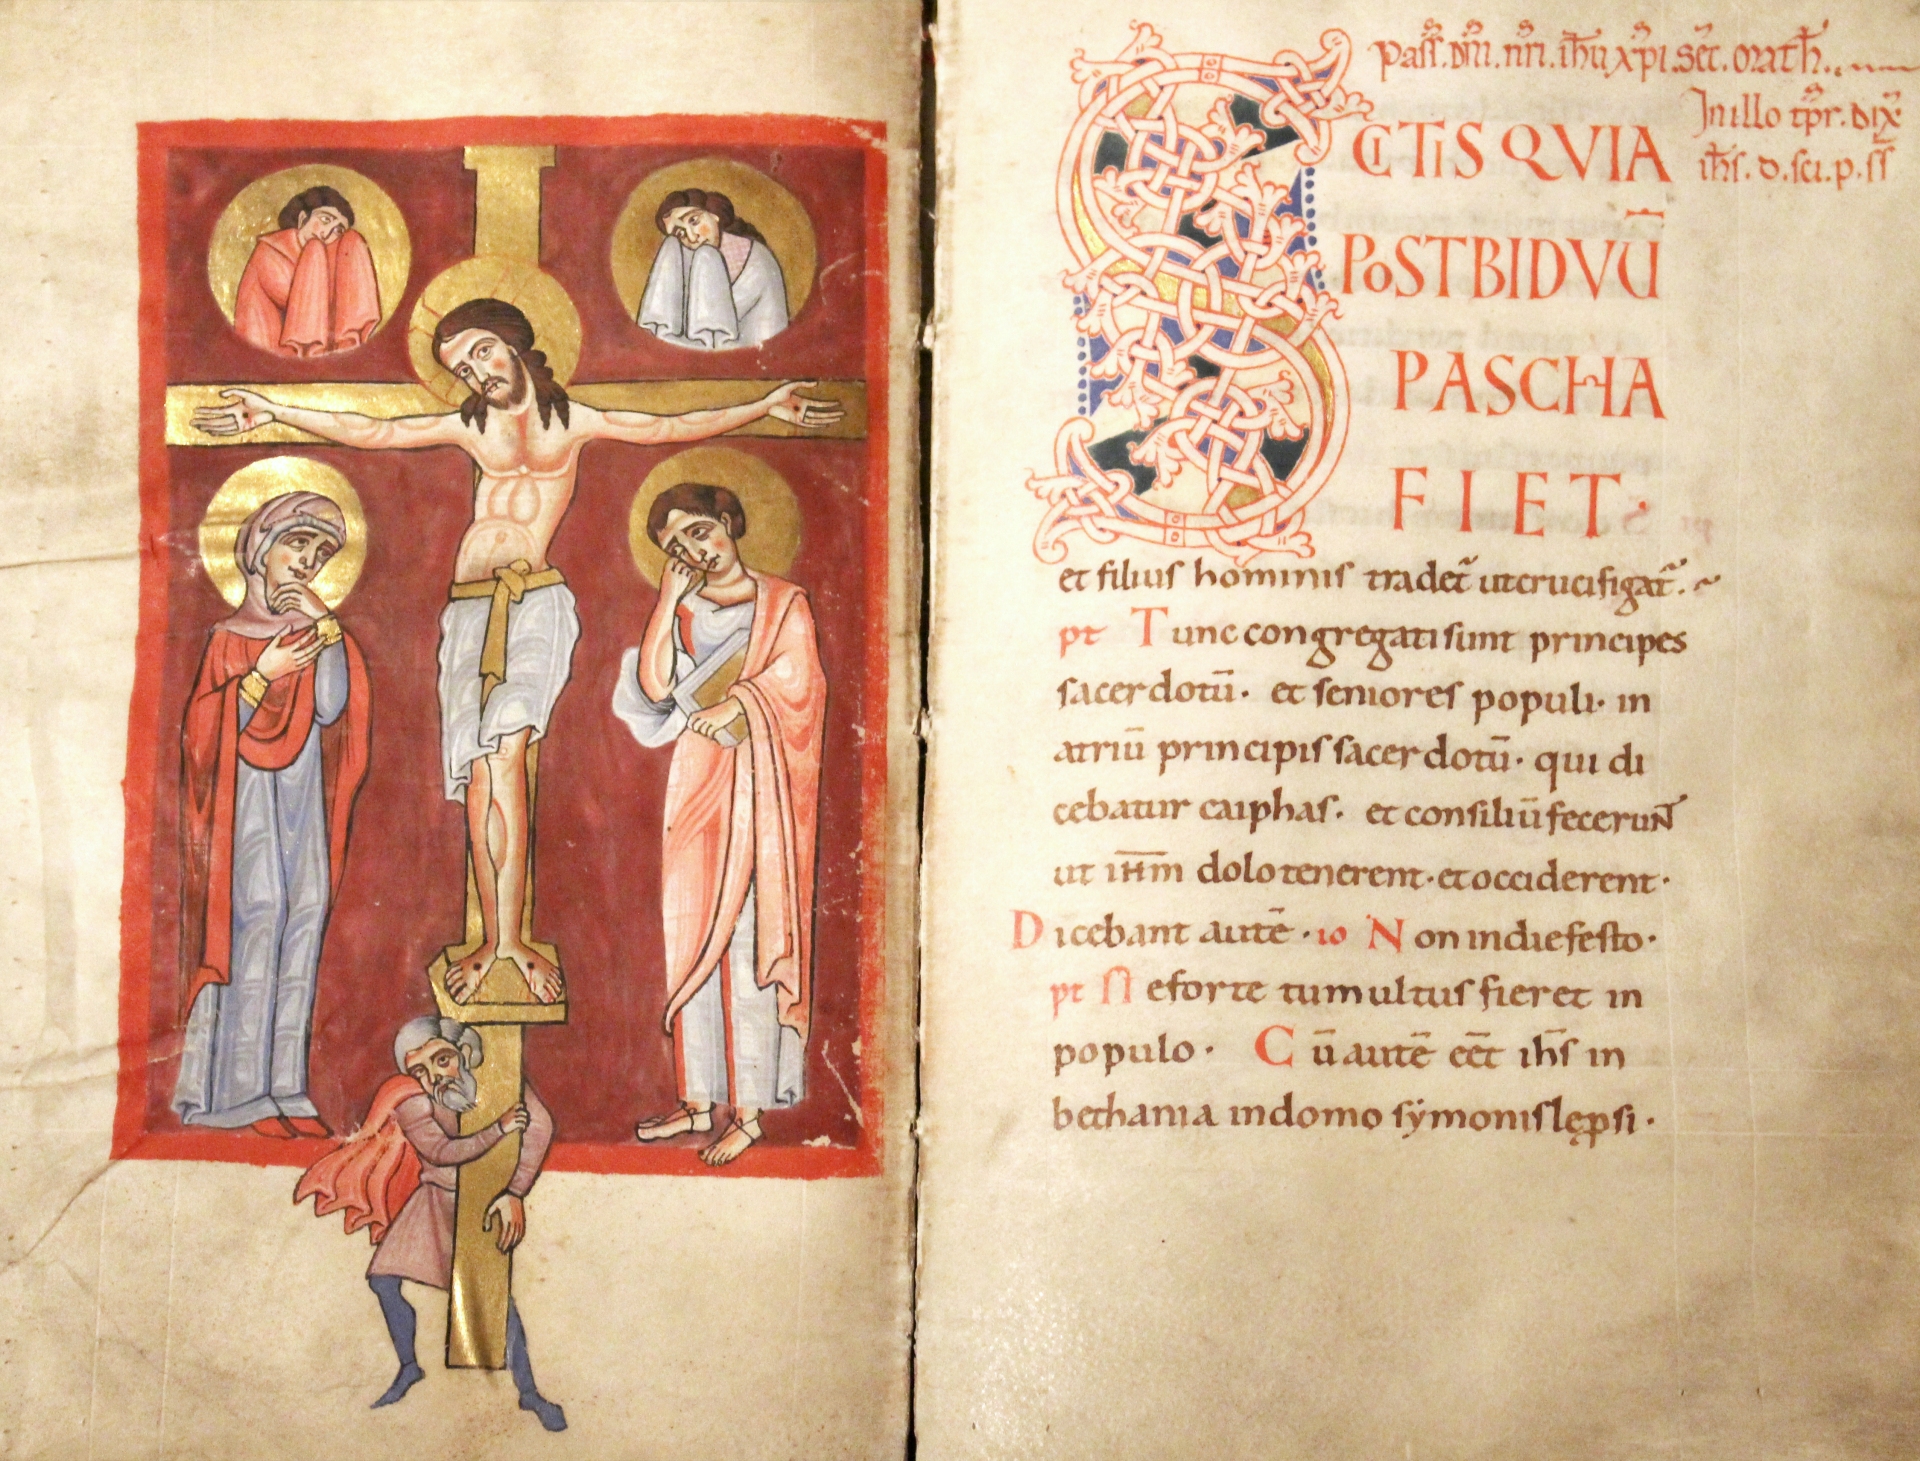 Pass̄. Dn̄i. nr̄i. ih̄u xp̄i. sēc. math̄.
In illo tp̄r. dix̄
ih̄s. d. sci. p. ss
SCITIS QVIA
POST BIDVŪ
PASCHA
FIET·
et filius hominis tradet̄ ut crucifigat̄.
pt Tunc congregati sunt principes
sacerdotū· et seniores populi· in
atriū principis sacerdotū· qui di
cebatur caiphas· et consiliū fecerunt
ut ih̄m dolo tenerent· et occiderent·
Dicebant autē· io Non in die festo·
pt Ne forte tumultus fieret in
populo· Cū autē eēt ih̄s in
bethania in domo sẏmonis lęp̄si·